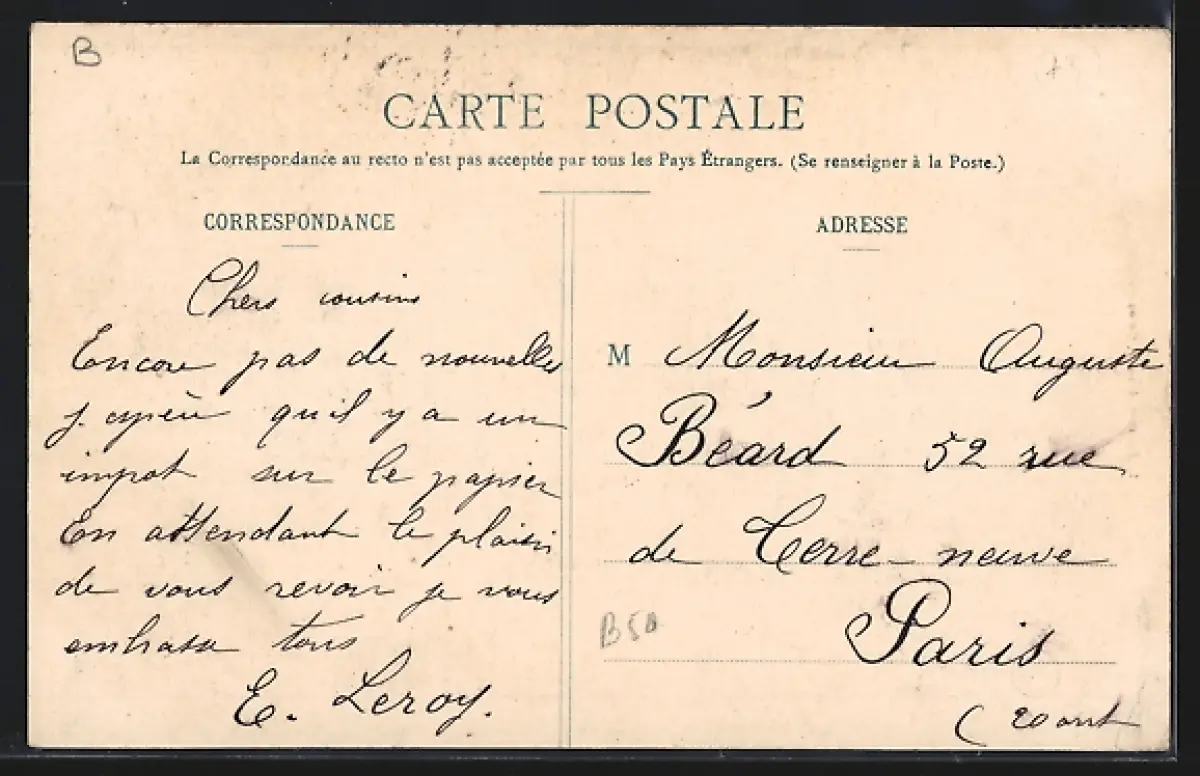 B
CARTE POSTALE
La Correspondance au recto n'est pas acceptée par tous les Pays Étrangers. (Se renseigner à la Poste.)
CORRESPONDANCE
ADRESSE
Chers cousins
Encore pas de nouvelles
qu'il y a un
impot sur le papier
En attendant le plaisir
de vous revoir je vous
embrasse tous
E. Leroy.
M Monsieur Auguste
Béard 52 rue
de Terre-neuve
Paris
B50